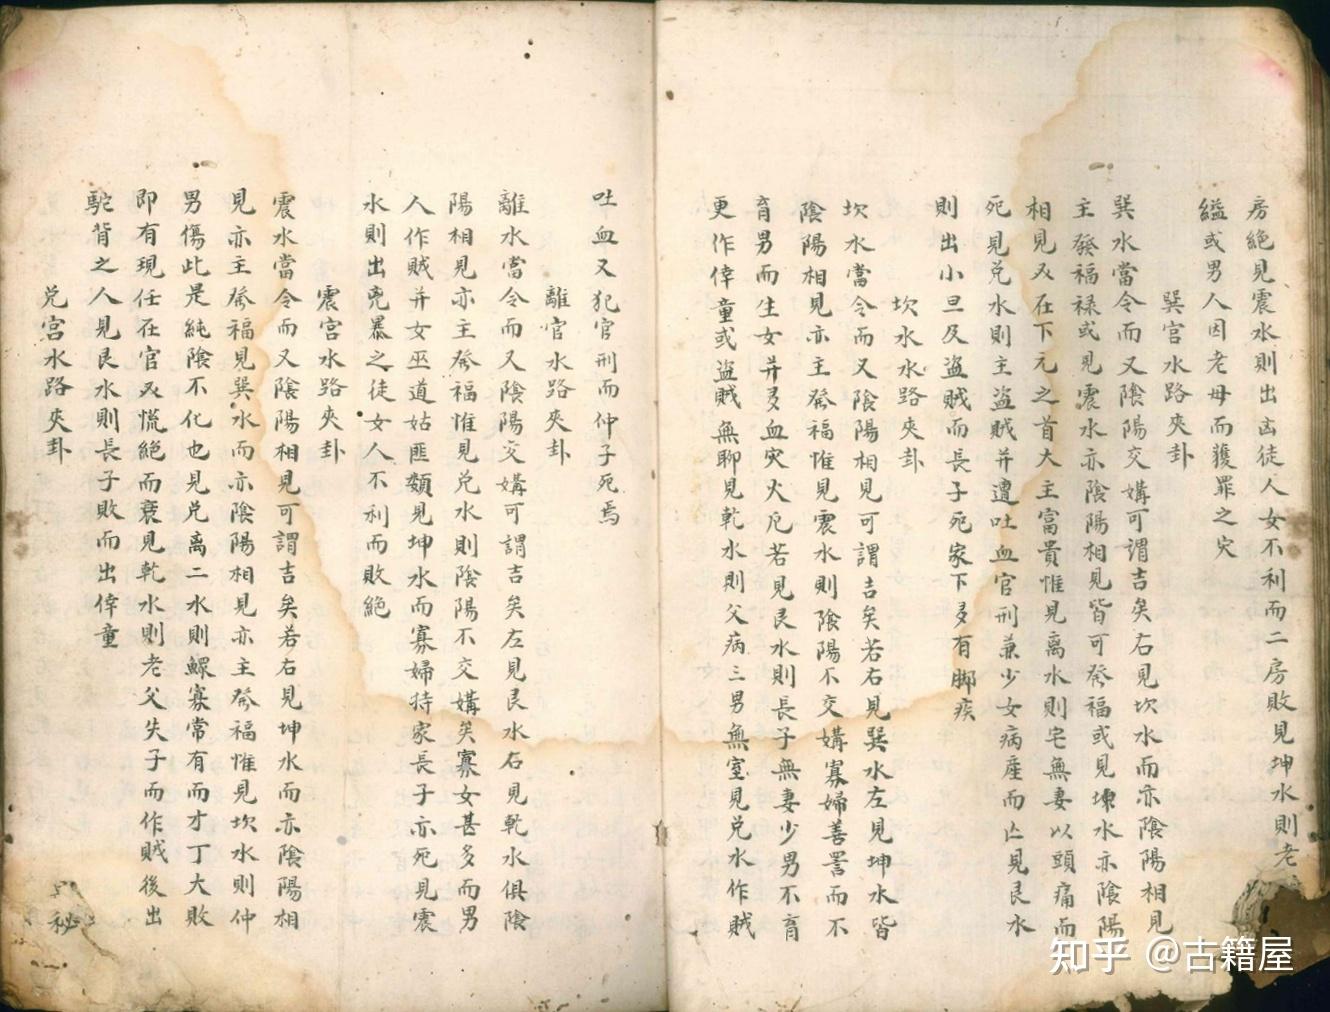 房絶見震水則出凶徒人女不利而二房敗見坤水則老
縊或男人因老母而獲罪之灾
巽宮水路夾卦
巽水當令而又陰陽交媾可谓吉矣右見坎水而亦陰陽相見
主發福禄或見震水亦陰陽相見皆可發福或見水亦陰陽
相見又在下元之首大主富貴惟見离水則宅無妻以頭痛而
死見兑水則主盗賊并遭吐血官刑兼少女病産而亡見艮水
則出小旦及盗賊而長子死家下多有脚疾
坎水水路夾卦
坎水當令而又陰陽相見可謂吉矣若右見巽水左見坤水皆
陰陽相見亦主發福惟見震水則陰陽不交媾寡婦善詈而不
育男而生女并多血灾火厄若見艮水則長子無妻少男不育
更作倖童或盗賊無聊見乾水則父病三男無室見兑水作賊
吐血又犯官刑而仲子死焉
離官水路夾卦
離水當令而又陰陽交媾可謂吉矣左見艮水右見乾水俱陰
陽相見亦主發福惟見兑水則陰陽不交媾矣寡女甚多而男
人作賊并女巫道姑匪類見坤水而寡婦持家長子亦死見震
水則出兇暴之徒女人不利而敗絶
震宮水路夾卦
震水當令而又陰陽相見可謂吉矣若右見坤水而亦陰陽相
見亦主發福見巽水而亦陰陽相見亦主發福惟見坎水則仲
男傷此是純陰不化也見兑离二水則鰥寡常有而才丁大敗
即有現任在官又慌絶而衰見乾水則老父失子而作賊後出
駝背之人見艮水則長子敗而出倖童
兑宮水路夾卦
秘
知乎 @古籍屋